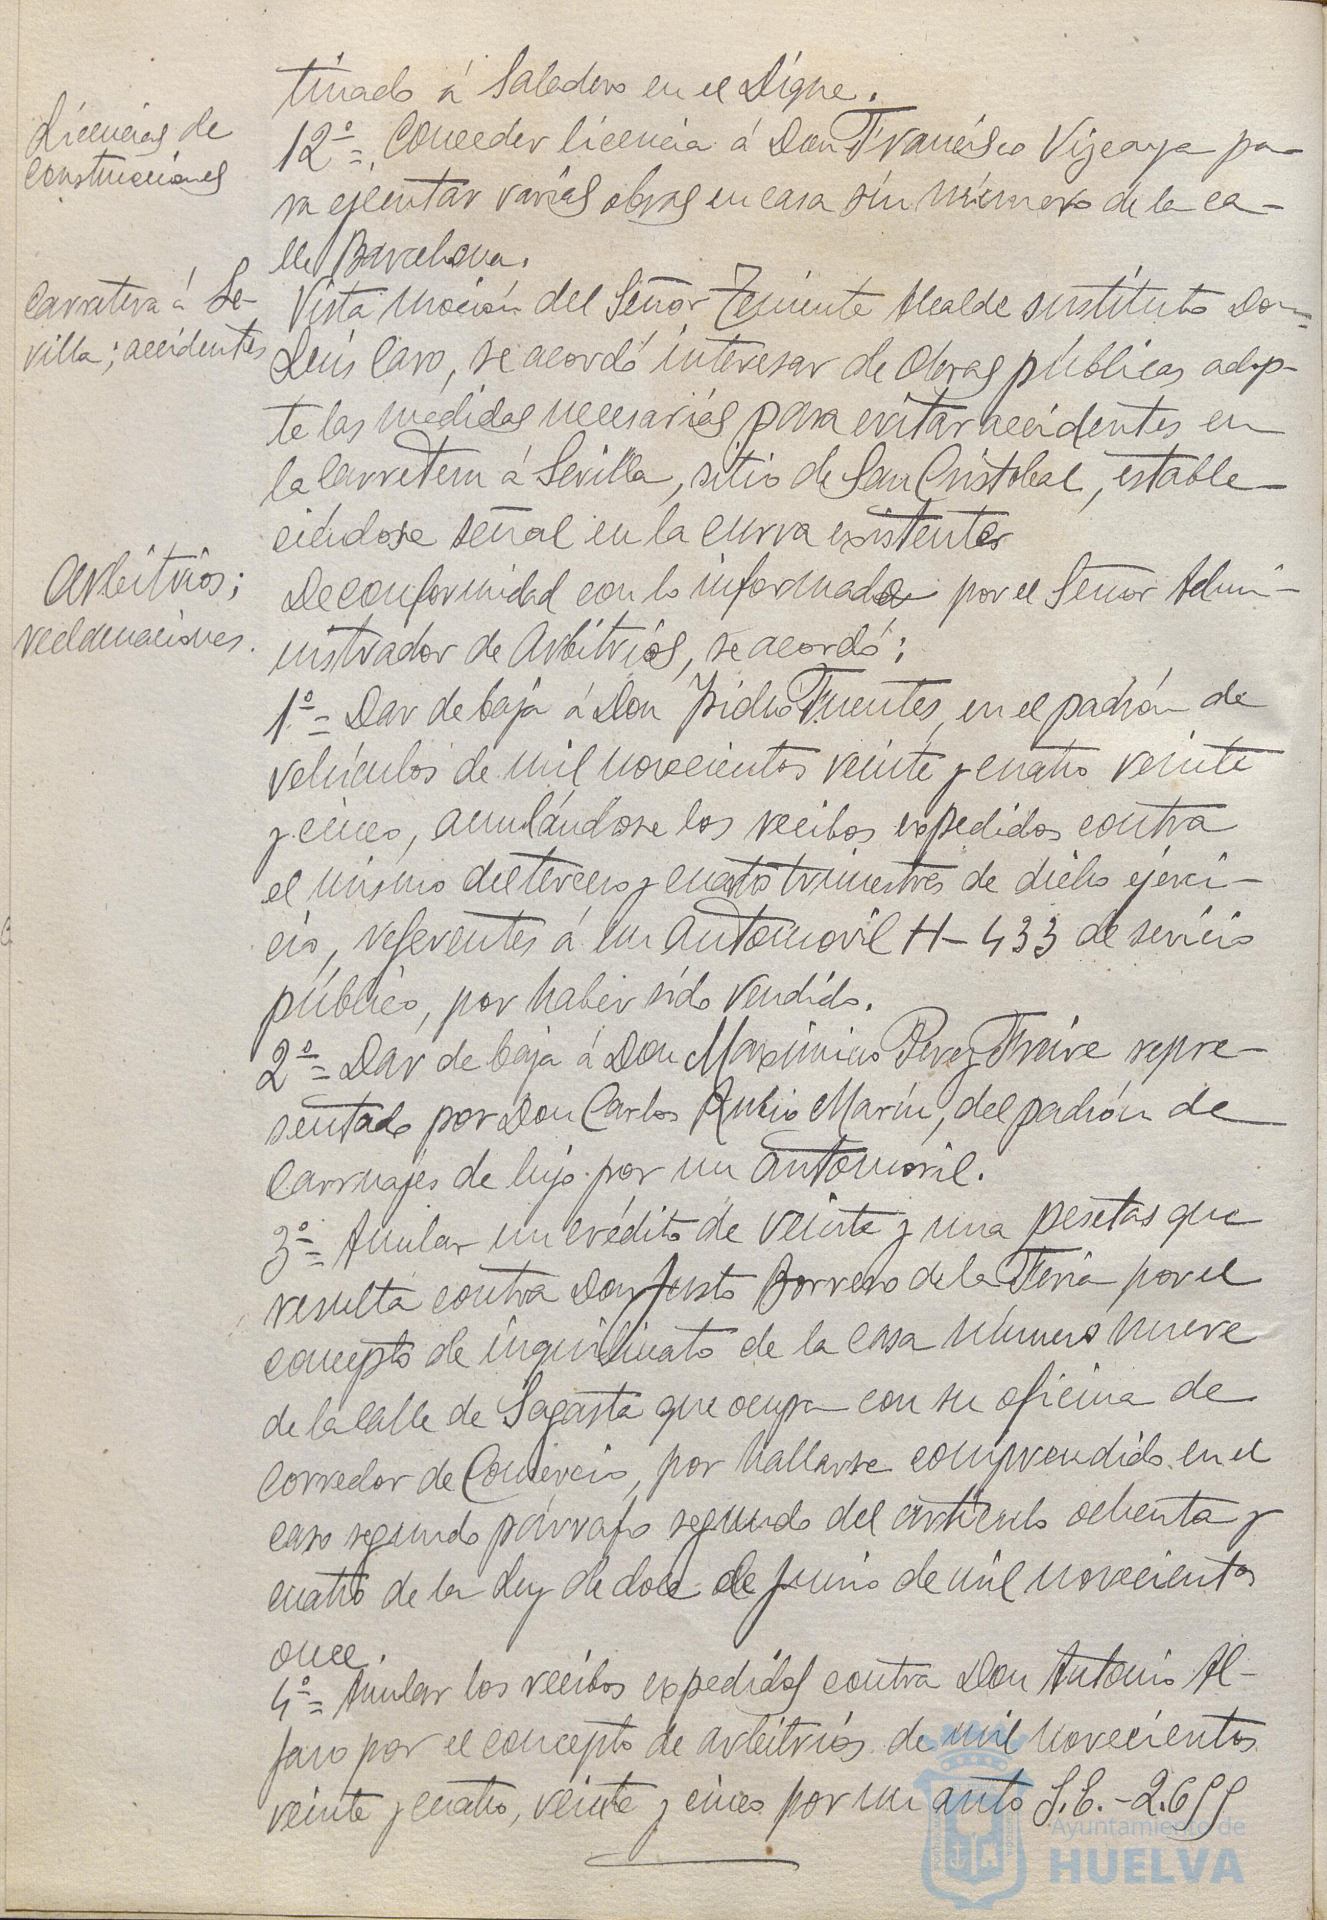 tinado á Saladero en el Dique.
Licencias de
construcciones
12º=. Conceder licencia á Don Francisco Vizcaya pa-
ra ejecutar varias obras en casa sin número de la ca-
lle Barcelona.
Carretera á Se-
villa; accidentes
Vista moción del Señor Teniente Alcalde sustituto Don
Luis Caro, se acordó interesar de Obras públicas adop-
te las medidas necesarias para evitar accidentes en
la Carretera á Sevilla, sitio de San Cristobal, estable-
ciéndose señal en la curva existente
Arbitrios;
reclamaciones.
De conformidad con lo informado por el Señor Admi-
nistrador de Arbitrios, se acordó:
1º= Dar de baja á Don Isidro Fuentes, en el padrón de
vehículos de mil novecientos veinte y cuatro veinte
y cinco, anulándose los recibos expedidos contra
el mismo del tercero y cuarto trimestres de dicho ejerci-
cio, referentes á un automovil H-433 de servicio
público, por haber sido vendido.
2º= Dar de baja á Don Maximino Perez Freire repre-
sentado por Don Carlos Rubio Marín, del padrón de
carruajes de lujo por un automóvil.
3º= Anular un crédito de veinte y una pesetas que
resulta contra Don Justo Borrero de la Feria por el
concepto de inquilinato de la casa número nueve
de la calle de Sagasta que ocupa con su oficina de
Corredor de Comercio, por hallarse comprendido en el
caso segundo párrafo segundo del artículo ochenta y
cuatro de la Ley de doce de Junio de mil novecientos
once.
4º= Anular los recibos expedidos contra Don Antonio Al-
faro por el concepto de arbitrios de mil novecientos
veinte y cuatro, veinte y cinco por un auto S.E.-2.699
Ayuntamiento de
HUELVA